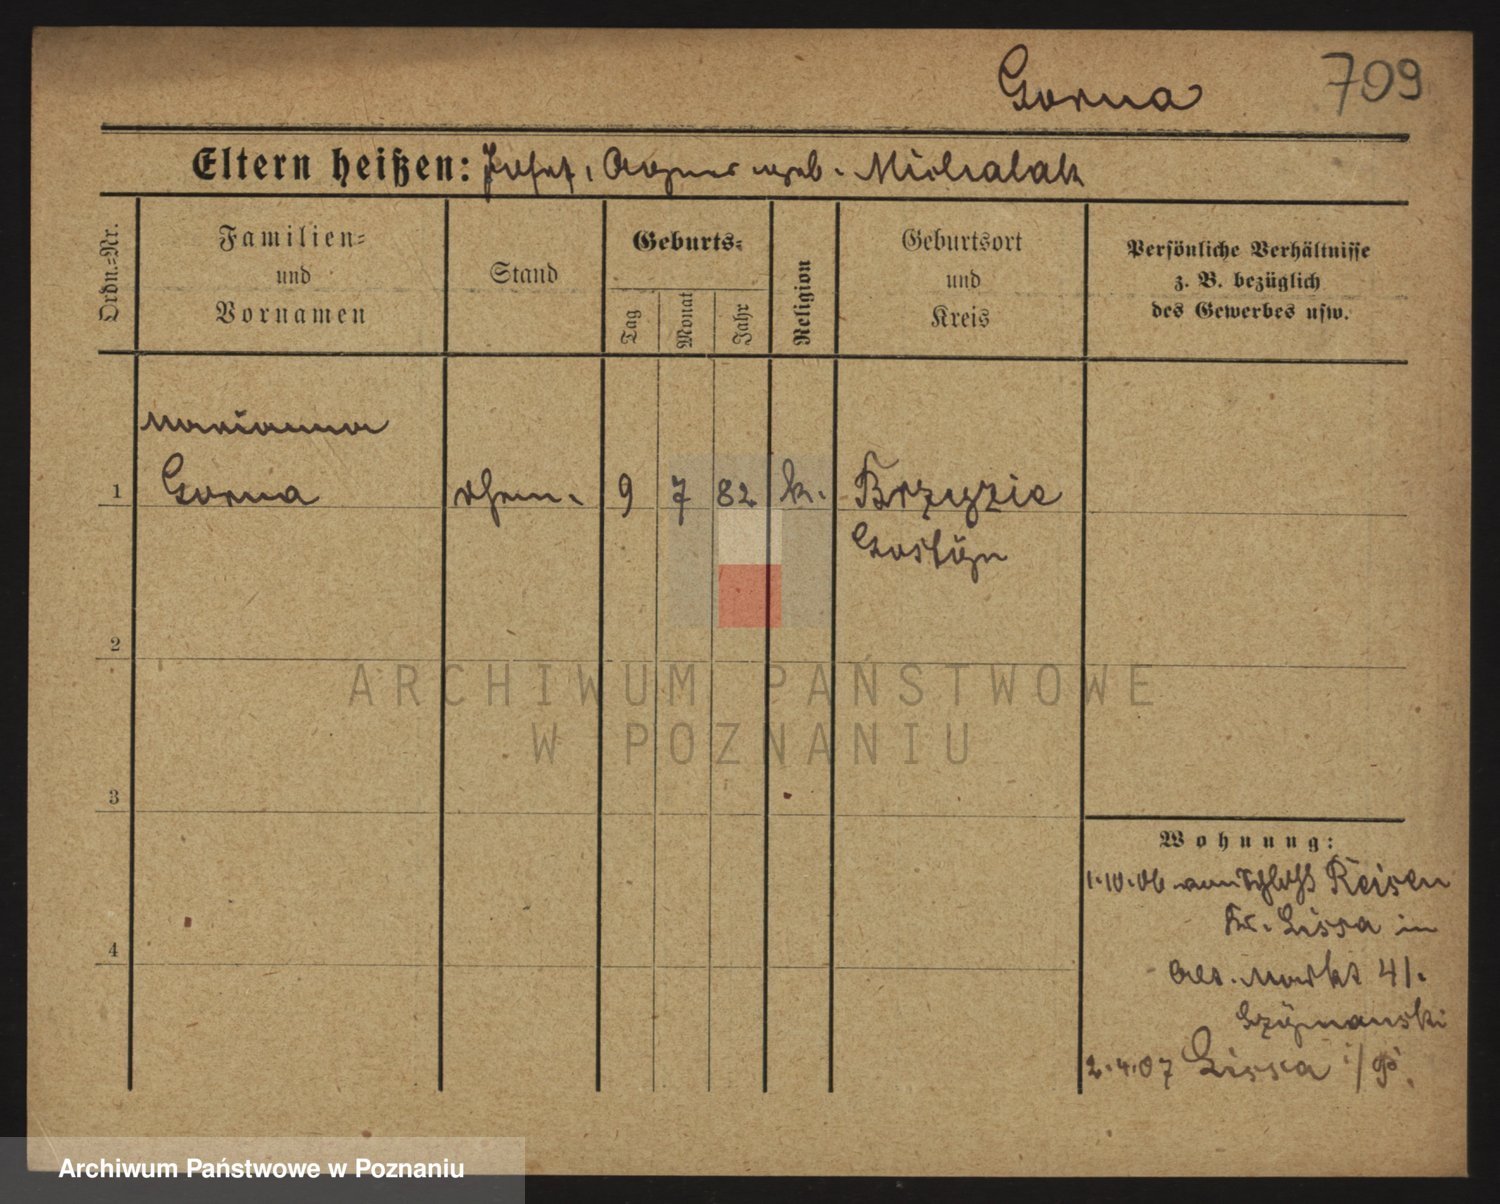 Gorna 709
Eltern heißen: Josef, Agnes geb. Michalak
Ordn.-Nr.
Familien-
und
Vornamen
Stand
Geburts-
Tag
Monat
Jahr
Religion
Geburtsort
und
Kreis
Persönliche Verhältnisse
z. B. bezüglich
des Gewerbes usw.
Marianna
1 Gorna 9 7 82 k. Brzezie
Gostyn
2
3
4
Wohnung:
1.10.06 von Schloß Reisen
Kr. Lissa in
Alt. Markt 41.
Szymanski
2.4.07 Lissa i/P.
ARCHIWUM PAŃSTWOWE
W POZNANIU
Archiwum Państwowe w Poznaniu